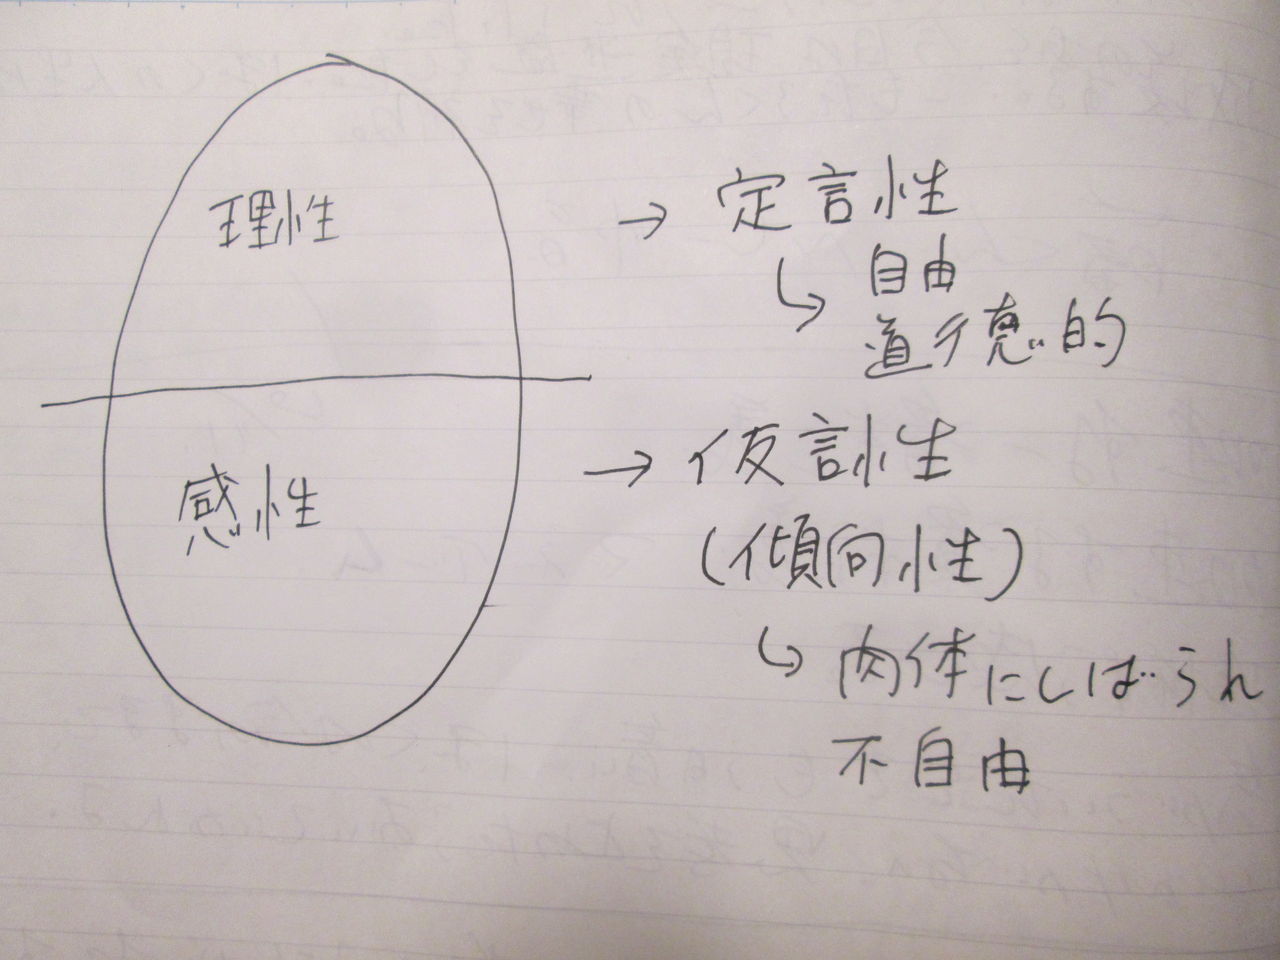 理性
→ 定言性
自由
道徳的
感性
→ 仮言性
(傾向性)
肉体にしばられ
不自由